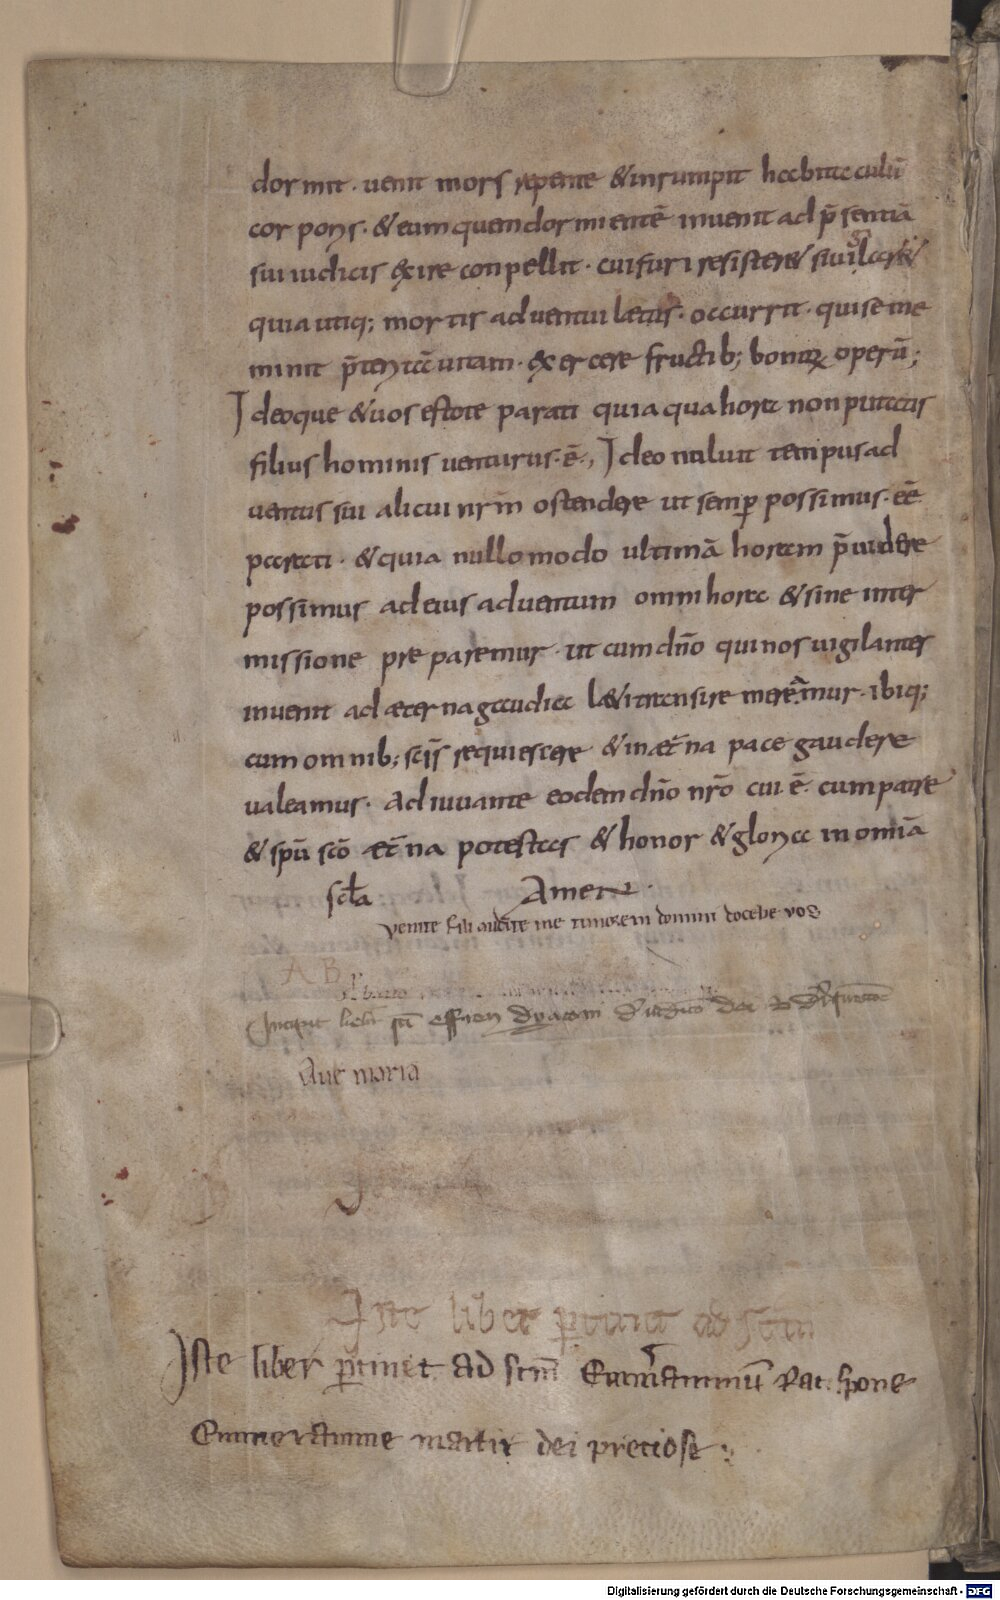 dormit · uenit mors repente & inrumpit habitaculū
corporis · & eum quem dormientē inuenit ad p̄sentiā
sui iudicis exire conpellit · cui furi resisteret si uigilaret
quia utiq; mortis aduentui laetus · occurrit · qui se me
minit p̄teritā uitam · exercere fructib; bonorꝝ operū;
Ideoque & uos estote parati quia qua hora non putatis
filius hominis uenturus · ē ·, Ideo noluit tempus ad
uentus sui alicui nrm̄ ostendere ut semꝑ possimus · eē
parati · & quia nullo modo ultimā horam p̄uidere
possimus ad eius aduentum omni hora & sine inter
missione preparemur · ut cum dn̄o qui nos uigilantes
inuenit ad aeterna gaudia l&itia transire mereamur · ibiq;
cum omnib; scīs requiescere & in aet̄na pace gaudere
ualeamus · adiuuante eodem dn̄o nr̄o cui ē cum patre
& spū scō et̄na potestas & honor & gloria in omīa
scl̄a Amen ·
venite fili audite me timorem domini docebo vos
A B
Incipit liber sc̄i effrem dyacon de iudicio dei
Aue maria
Iste liber ꝑtinet ad scm̄
Iste liber ꝑtinet ad scm̄ Emmerammū Ratispone
Emmeramme martir dei preciose